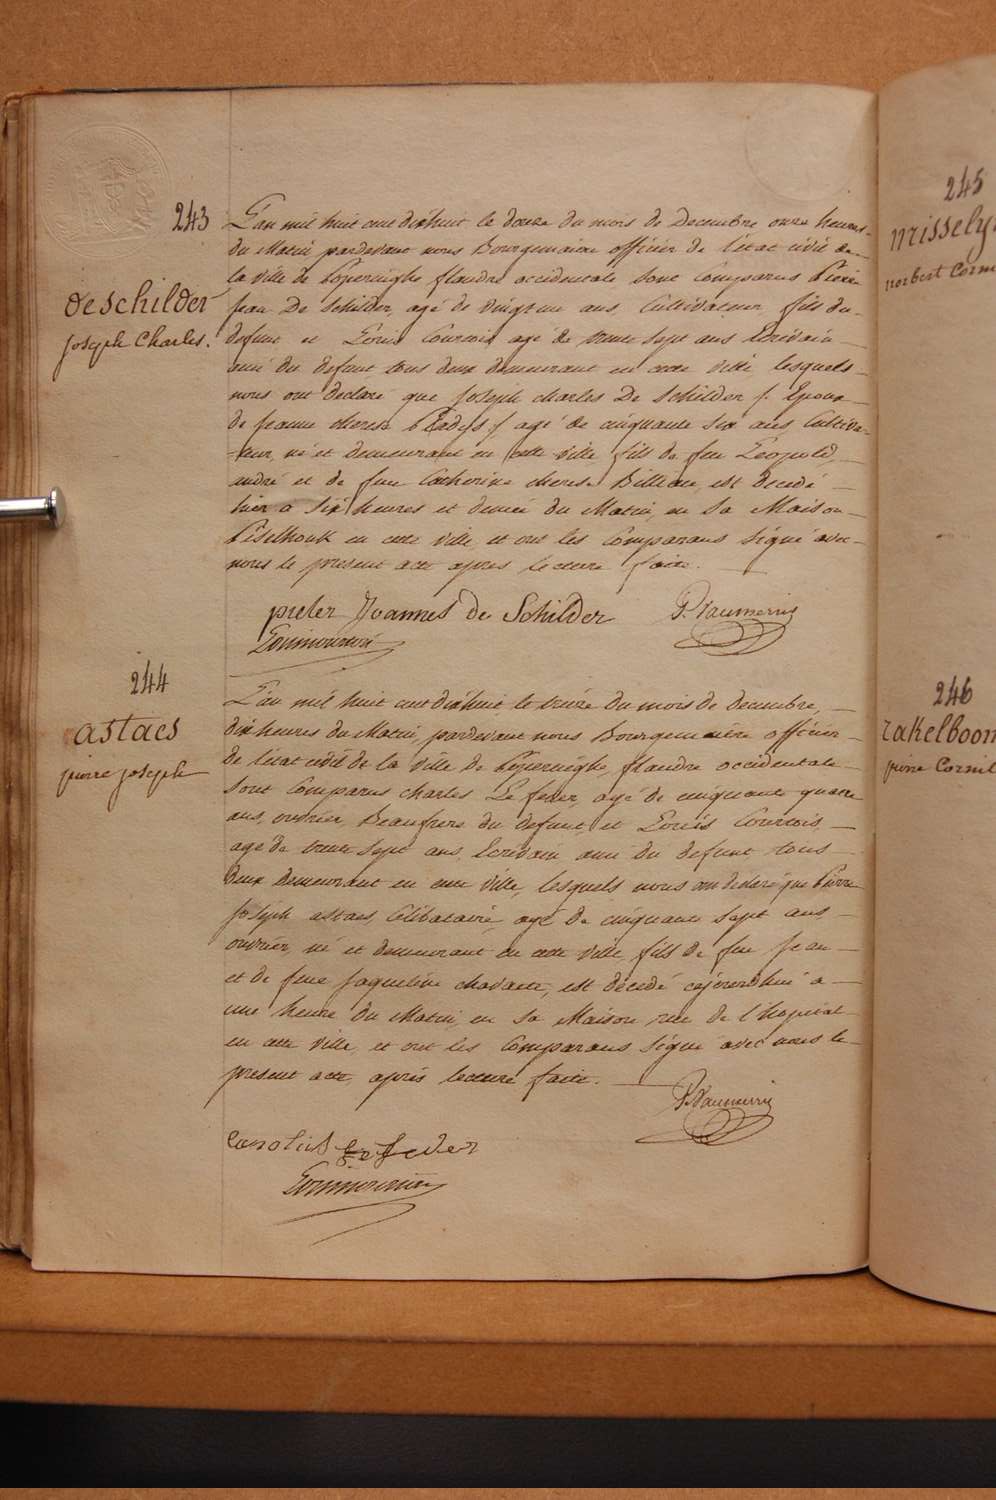 243
deschilder
joseph Charles.
L'an mil huit cent dixhuit le douze du mois de Decembre onze heures
du Matin pardevant nous Bourgemaitre officier de l'état civil de
la ville de Poperinghe flandre occidentale sont Comparus Pierre
jean De Schilder, agé de vingt un ans, Cultivateur, fils du
defunt et Louis Courtois agé de trente sept ans Ecrivain
ami du defunt tous deux demeurant en cette ville lesquels
nous ont declaré que joseph charles De Schilder /: Epoux
de jeanne therese :/ agé de cinquante six ans, Cultiva-
teur, né et demeurant en cette ville fils de feu Léopold,
andré et de feue Catherine therese Billiau, est decedé
hier a six heures et demie du Matin, en sa Maison
en cette ville, et ont les Comparans signé avec
nous le present acte apres lecture faite.
pieter Joannes de Schilder
244
astaes
pierre joseph
L'an mil huit cent dixhuit, le treize du mois de decembre,
dix heures du Matin, pardevant nous Bourgemaitre officier
de l'état civil de la ville de Poperinghe, flandre occidentale
sont Comparus charles Le fever, agé de cinquante quatre
ans, ouvrier, Beaufrere du defunt, et Louis Courtois,
agé de trente sept ans, Ecrivain ami du defunt tous
deux demeurant en cette ville, lesquels nous ont declaré que Pierre
joseph astaes, Célibataire, agé de cinquante sept ans,
ouvrier, né et demeurant en cette ville, fils de feu jean
et de feue jaqueline, est décedé cejourd'hui a
une heure du Matin, en sa Maison rue de l'hopital
en cette ville, et ont les Comparans signé avec nous le
present acte, après lecture faite.
Carolus Le fever
245
missely
norbert Corn
246
rakelboom
pierre Cornil